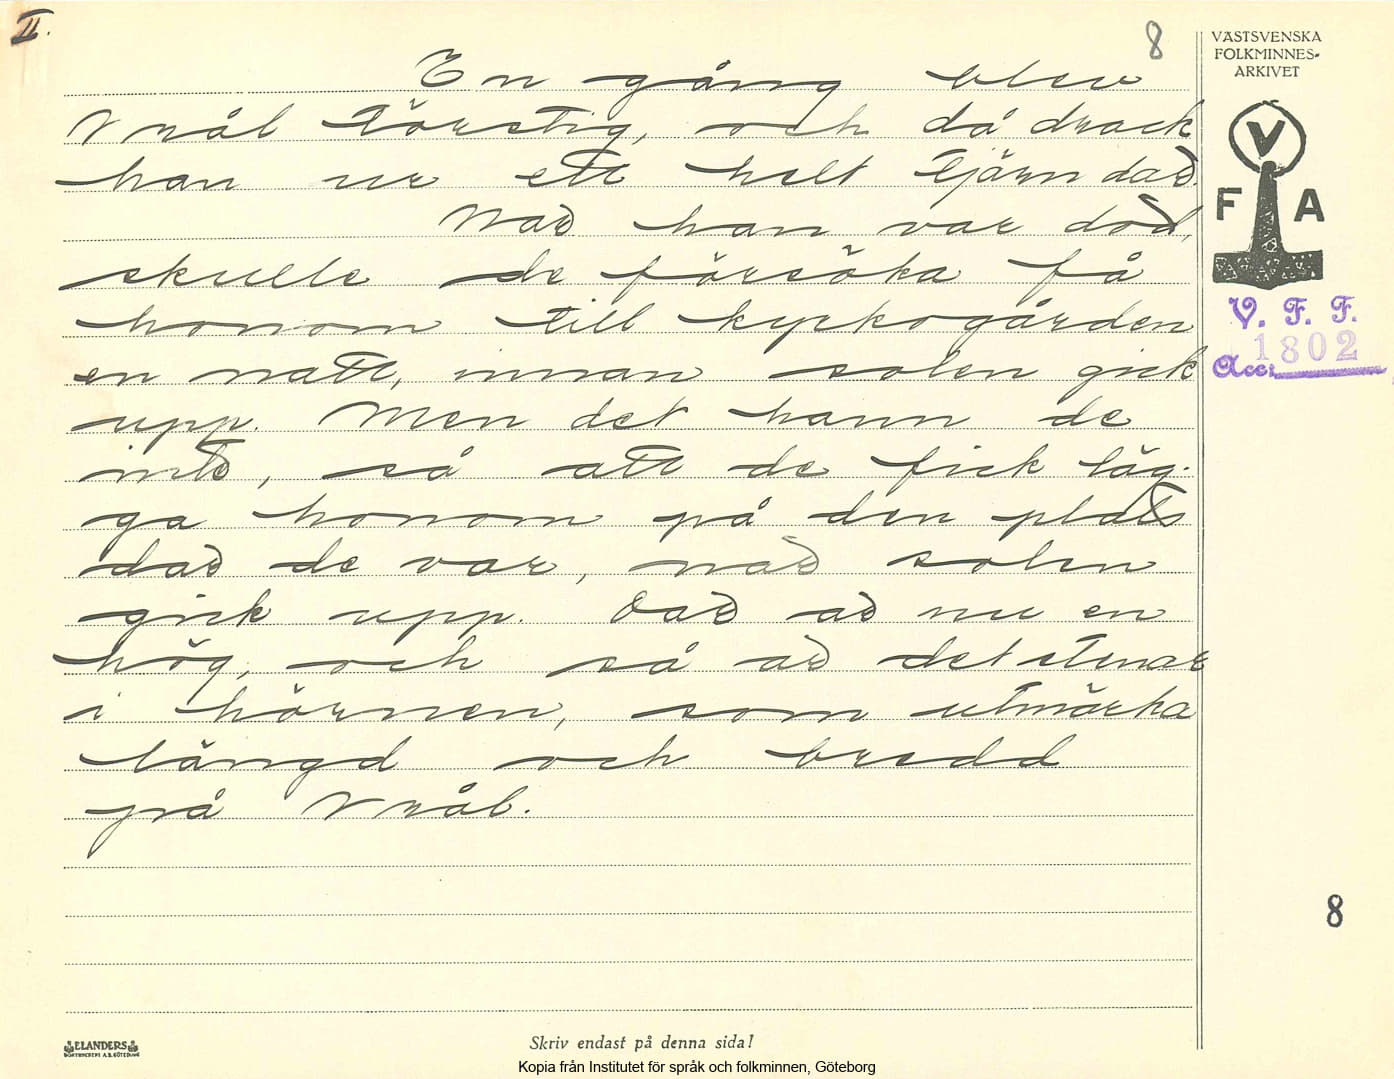 II.
8
VÄSTSVENSKA
FOLKMINNES-
ARKIVET
V
F A
V. F. F.
Acc. 1802
En gång blev
Vrål törstig, och då drack
han ur ett helt tjärn där.
När han var död,
skulle de försöka få
honom till kyrkogården
en natt, innan solen gick
upp. Men det hann de
inte, så att de fick läg-
ga honom på den plats
där de var, när solen
gick upp. Där är nu en
hög, och så är det stenar
i hörnen, som utmärka
längd och bredd
på Vrål.
8
ELANDERS
BOKTRYCKERI A.B. GÖTEBORG
Skriv endast på denna sida!
Kopia från Institutet för språk och folkminnen, Göteborg